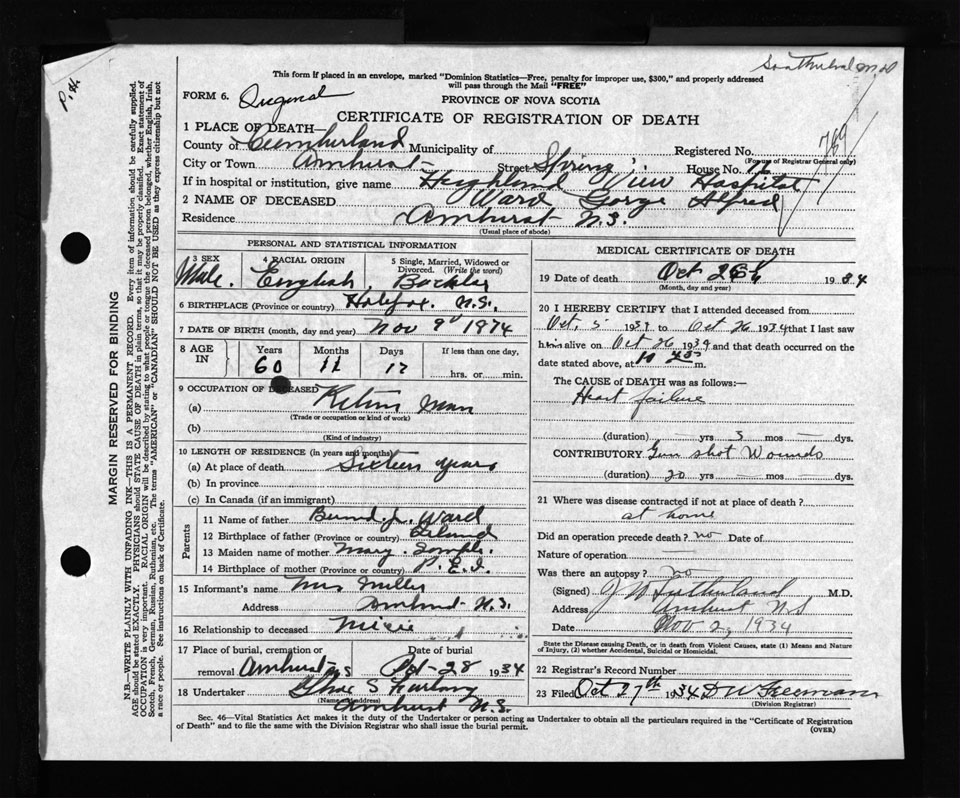 Sutherland M.D
P. 4.
This form if placed in an envelope, marked "Dominion Statistics—Free, penalty for improper use, $300," and properly addressed
will pass through the Mail "FREE"
FORM 6. Original
PROVINCE OF NOVA SCOTIA
CERTIFICATE OF REGISTRATION OF DEATH
769
1 PLACE OF DEATH—
County of Cumberland Municipality of Registered No.
(For use of Registrar General only)
City or Town Amhurst Street Spring House No. 16
If in hospital or institution, give name Highland View Hospital
2 NAME OF DECEASED Ward Gorge Alfred
Residence Amhurst N.S.
(Usual place of abode)
PERSONAL AND STATISTICAL INFORMATION
3 SEX Male.
4 RACIAL ORIGIN English
5 Single, Married, Widowed or Divorced. (Write the word)
6 BIRTHPLACE (Province or country) Halifax. N.S.
7 DATE OF BIRTH (month, day and year) Nov 9 1874
8 AGE IN Years Months Days If less than one day,
60 11 17 hrs. or min.
9 OCCUPATION OF DECEASED
(a) Man
(Trade or occupation or kind of work)
(b)
(Kind of industry)
10 LENGTH OF RESIDENCE (in years and months)
(a) At place of death Sixteen Years
(b) In province
(c) In Canada (if an immigrant)
Parents
11 Name of father Ward
12 Birthplace of father (Province or country)
13 Maiden name of mother Mary.
14 Birthplace of mother (Province or country) P.E.I.
15 Informant's name Mrs Miller
Address Amhurst N.S.
16 Relationship to deceased Niece
17 Place of burial, cremation or removal Amhurst N S
Date of burial Oct-28 1934
18 Undertaker S
(Name and address)
Amhurst N.S.
MEDICAL CERTIFICATE OF DEATH
19 Date of death Oct 26 1934
(Month, day and year)
20 I HEREBY CERTIFY that I attended deceased from
Oct. 5 193 to Oct 26 1934 that I last saw
him alive on Oct 26 1934 and that death occurred on the
date stated above, at 10 45 m.
The CAUSE of DEATH was as follows:—
Heart failure
(duration) — yrs 3 mos — dys.
CONTRIBUTORY Gun shot Wounds
(duration) 20 yrs mos dys.
21 Where was disease contracted if not at place of death?
at home
Did an operation precede death? no Date of
Nature of operation
Was there an autopsy? no
(Signed) J W Sutherland M.D.
Address Amhurst N S
Date Nov 2, 1934
State the Disease causing Death, or in death from Violent Causes, state (1) Means and Nature
of Injury, (2) whether Accidental, Suicidal or Homicidal.
22 Registrar's Record Number
23 Filed Oct 27th 1934 D W Freeman
(Division Registrar)
Sec. 46—Vital Statistics Act makes it the duty of the Undertaker or person acting as Undertaker to obtain all the particulars required in the "Certificate of Registration
of Death" and to file the same with the Division Registrar who shall issue the burial permit.
(OVER)
MARGIN RESERVED FOR BINDING
N.B.—WRITE PLAINLY WITH UNFADING INK—THIS IS A PERMANENT RECORD. Every item of information should be carefully supplied.
AGE should be stated EXACTLY. PHYSICIANS should STATE CAUSE OF DEATH in plain terms, so that it may be properly classified. Exact statement of
OCCUPATION is very important. RACIAL ORIGIN will be described by stating to what people or tongue the deceased person belonged, whether English, Irish,
Scotch, French, German, Russian, Ruthenian, etc. The terms "AMERICAN" or "CANADIAN" SHOULD NOT BE USED as they express citizenship but not
a race or people. See instructions on back of Certificate.